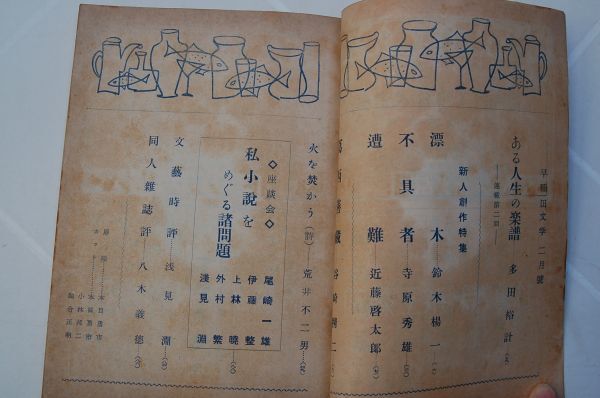 早稲田文学 二月號
ある人生の楽譜 多田裕計
連載第二回
新人創作特集
漂木 鈴木楊一
不具者 寺原秀雄
遭難 近藤啓太郎
火を焚かう（詩） 荒井不二男
◇座談会◇
私小説を
めぐる諸問題
尾崎一雄
伊藤整
上林曉
外村繁
浅見淵
文藝時評 浅見淵
同人雑誌評 八木義徳